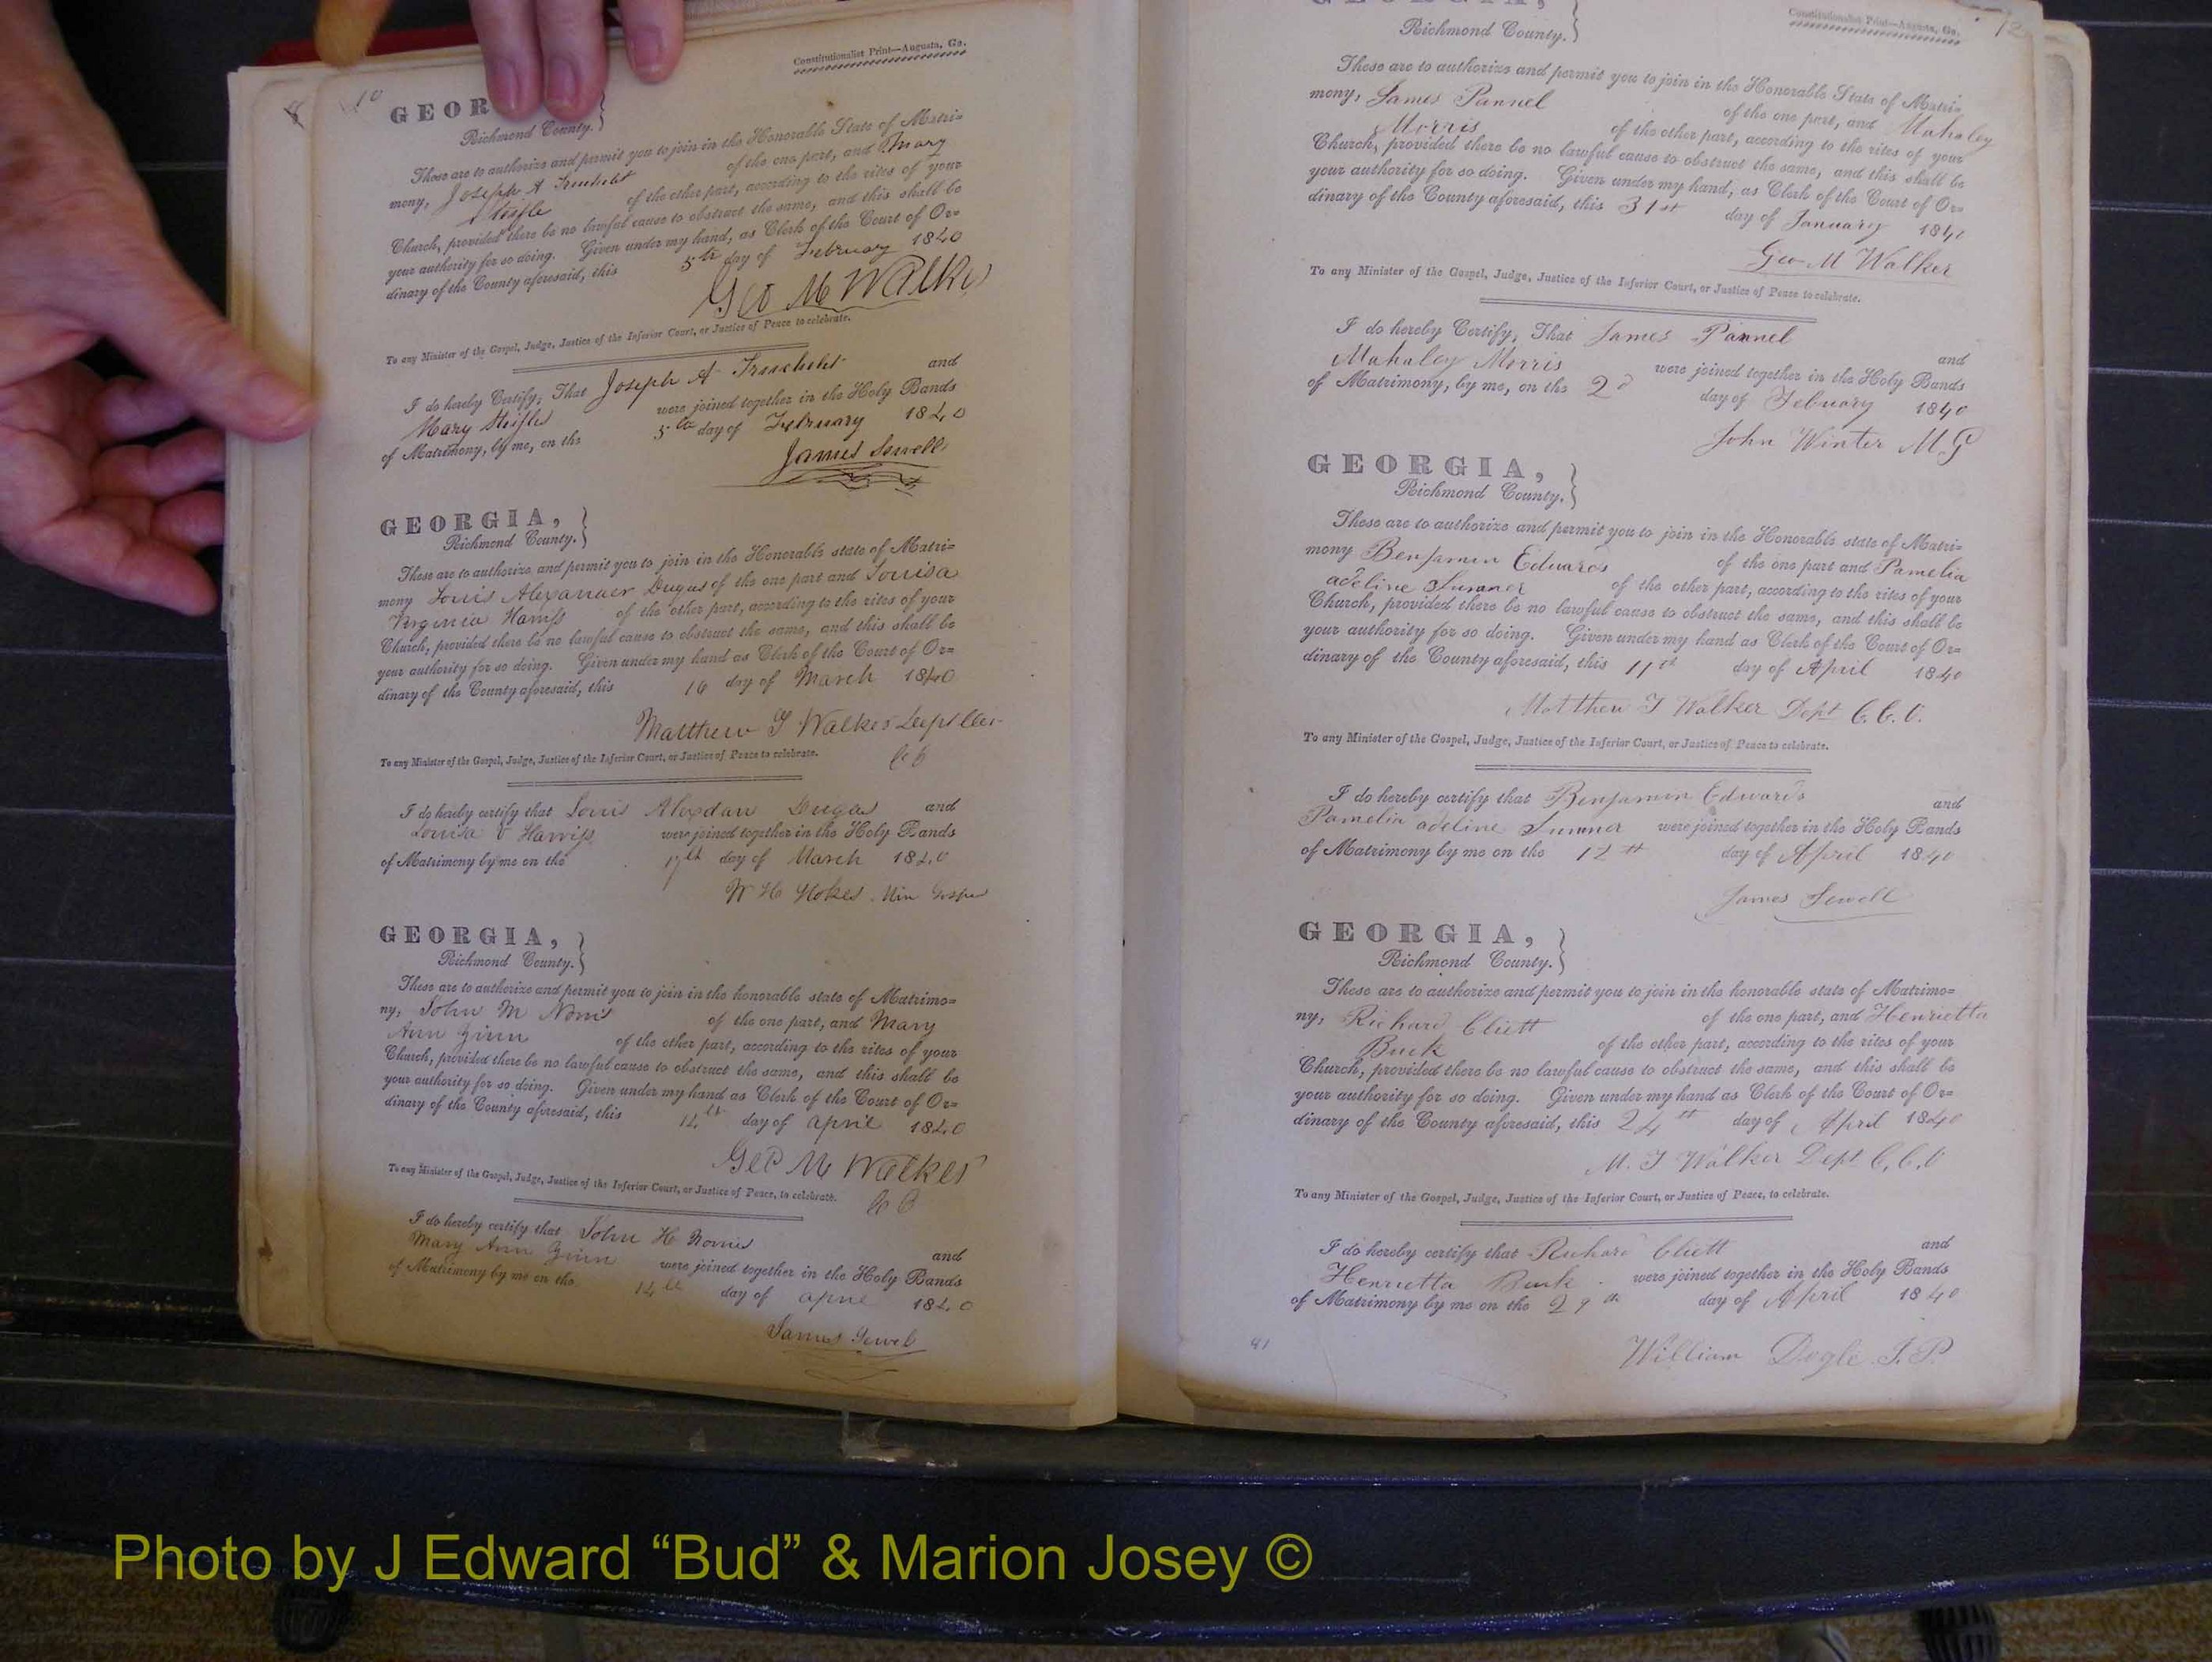 10
Constitutionalist Print—Augusta, Ga.
GEOR
Richmond County.}
These are to authorize and permit you to join in the Honorable State of Matri=
mony, Joseph A of the one part, and Mary
of the other part, according to the rites of your
Church, provided there be no lawful cause to obstruct the same, and this shall be
your authority for so doing. Given under my hand, as Clerk of the Court of Or=
dinary of the County aforesaid, this 5th day of February 1840
Geo M Walker
To any Minister of the Gospel, Judge, Justice of the Inferior Court, or Justice of Peace to celebrate.
I do hereby Certify, That Joseph A and
Mary were joined together in the Holy Bands
of Matrimony, by me, on the 5th day of February 1840
James Sewell
GEORGIA,}
Richmond County.
These are to authorize and permit you to join in the Honorable state of Matri=
mony Louis Alexander Dugas of the one part and Louisa
Virginia Harriss of the other part, according to the rites of your
Church, provided there be no lawful cause to obstruct the same, and this shall be
your authority for so doing. Given under my hand as Clerk of the Court of Or=
dinary of the County aforesaid, this 16 day of March 1840
Matthew Walker
To any Minister of the Gospel, Judge, Justice of the Inferior Court, or Justice of Peace to celebrate.
I do hereby certify that Louis Dugas and
Louisa V Harriss were joined together in the Holy Bands
of Matrimony by me on the 17th day of March 1840
W H Stokes Min
GEORGIA,}
Richmond County.
These are to authorize and permit you to join in the honorable state of Matrimo=
ny, John of the one part, and Mary
Ann Zinn of the other part, according to the rites of your
Church, provided there be no lawful cause to obstruct the same, and this shall be
your authority for so doing. Given under my hand as Clerk of the Court of Or=
dinary of the County aforesaid, this 14th day of April 1840
Geo M Walker
To any Minister of the Gospel, Judge, Justice of the Inferior Court, or Justice of Peace, to celebrate.
I do hereby certify that John and
Mary Ann Zinn were joined together in the Holy Bands
of Matrimony by me on the 14th day of April 1840
James Sewell
12
Constitutionalist Print—Augusta, Ga.
GEORGIA,}
Richmond County.
These are to authorize and permit you to join in the Honorable State of Matri=
mony, James Pannel of the one part, and Mahaley
Morris of the other part, according to the rites of your
Church, provided there be no lawful cause to obstruct the same, and this shall be
your authority for so doing. Given under my hand, as Clerk of the Court of Or=
dinary of the County aforesaid, this 31st day of January 1840
Geo M Walker
To any Minister of the Gospel, Judge, Justice of the Inferior Court, or Justice of Peace to celebrate.
I do hereby Certify, That James Pannel and
Mahaley Morris were joined together in the Holy Bands
of Matrimony, by me, on the 2d day of Febuary 1840
John Winter M.G
GEORGIA,}
Richmond County.
These are to authorize and permit you to join in the Honorable state of Matri=
mony Benjamin Edwards of the one part and Pamelia
adeline Sumner of the other part, according to the rites of your
Church, provided there be no lawful cause to obstruct the same, and this shall be
your authority for so doing. Given under my hand as Clerk of the Court of Or=
dinary of the County aforesaid, this 11th day of April 1840
Matthew Walker Dept C.C.O.
To any Minister of the Gospel, Judge, Justice of the Inferior Court, or Justice of Peace to celebrate.
I do hereby certify that Benjamin Edwards and
Pamelia adeline Sumner were joined together in the Holy Bands
of Matrimony by me on the 12th day of April 1840
James Sewell
GEORGIA,}
Richmond County.
These are to authorize and permit you to join in the honorable state of Matrimo=
ny, Richard Cliett of the one part, and Henrietta
Buck of the other part, according to the rites of your
Church, provided there be no lawful cause to obstruct the same, and this shall be
your authority for so doing. Given under my hand as Clerk of the Court of Or=
dinary of the County aforesaid, this 24th day of April 1840
M. Walker Dept C.C.O
To any Minister of the Gospel, Judge, Justice of the Inferior Court, or Justice of Peace, to celebrate.
I do hereby certify that Richard Cliett and
Henrietta Buck were joined together in the Holy Bands
of Matrimony by me on the 29th day of April 1840
William J.P.
Photo by J Edward “Bud” & Marion Josey ©